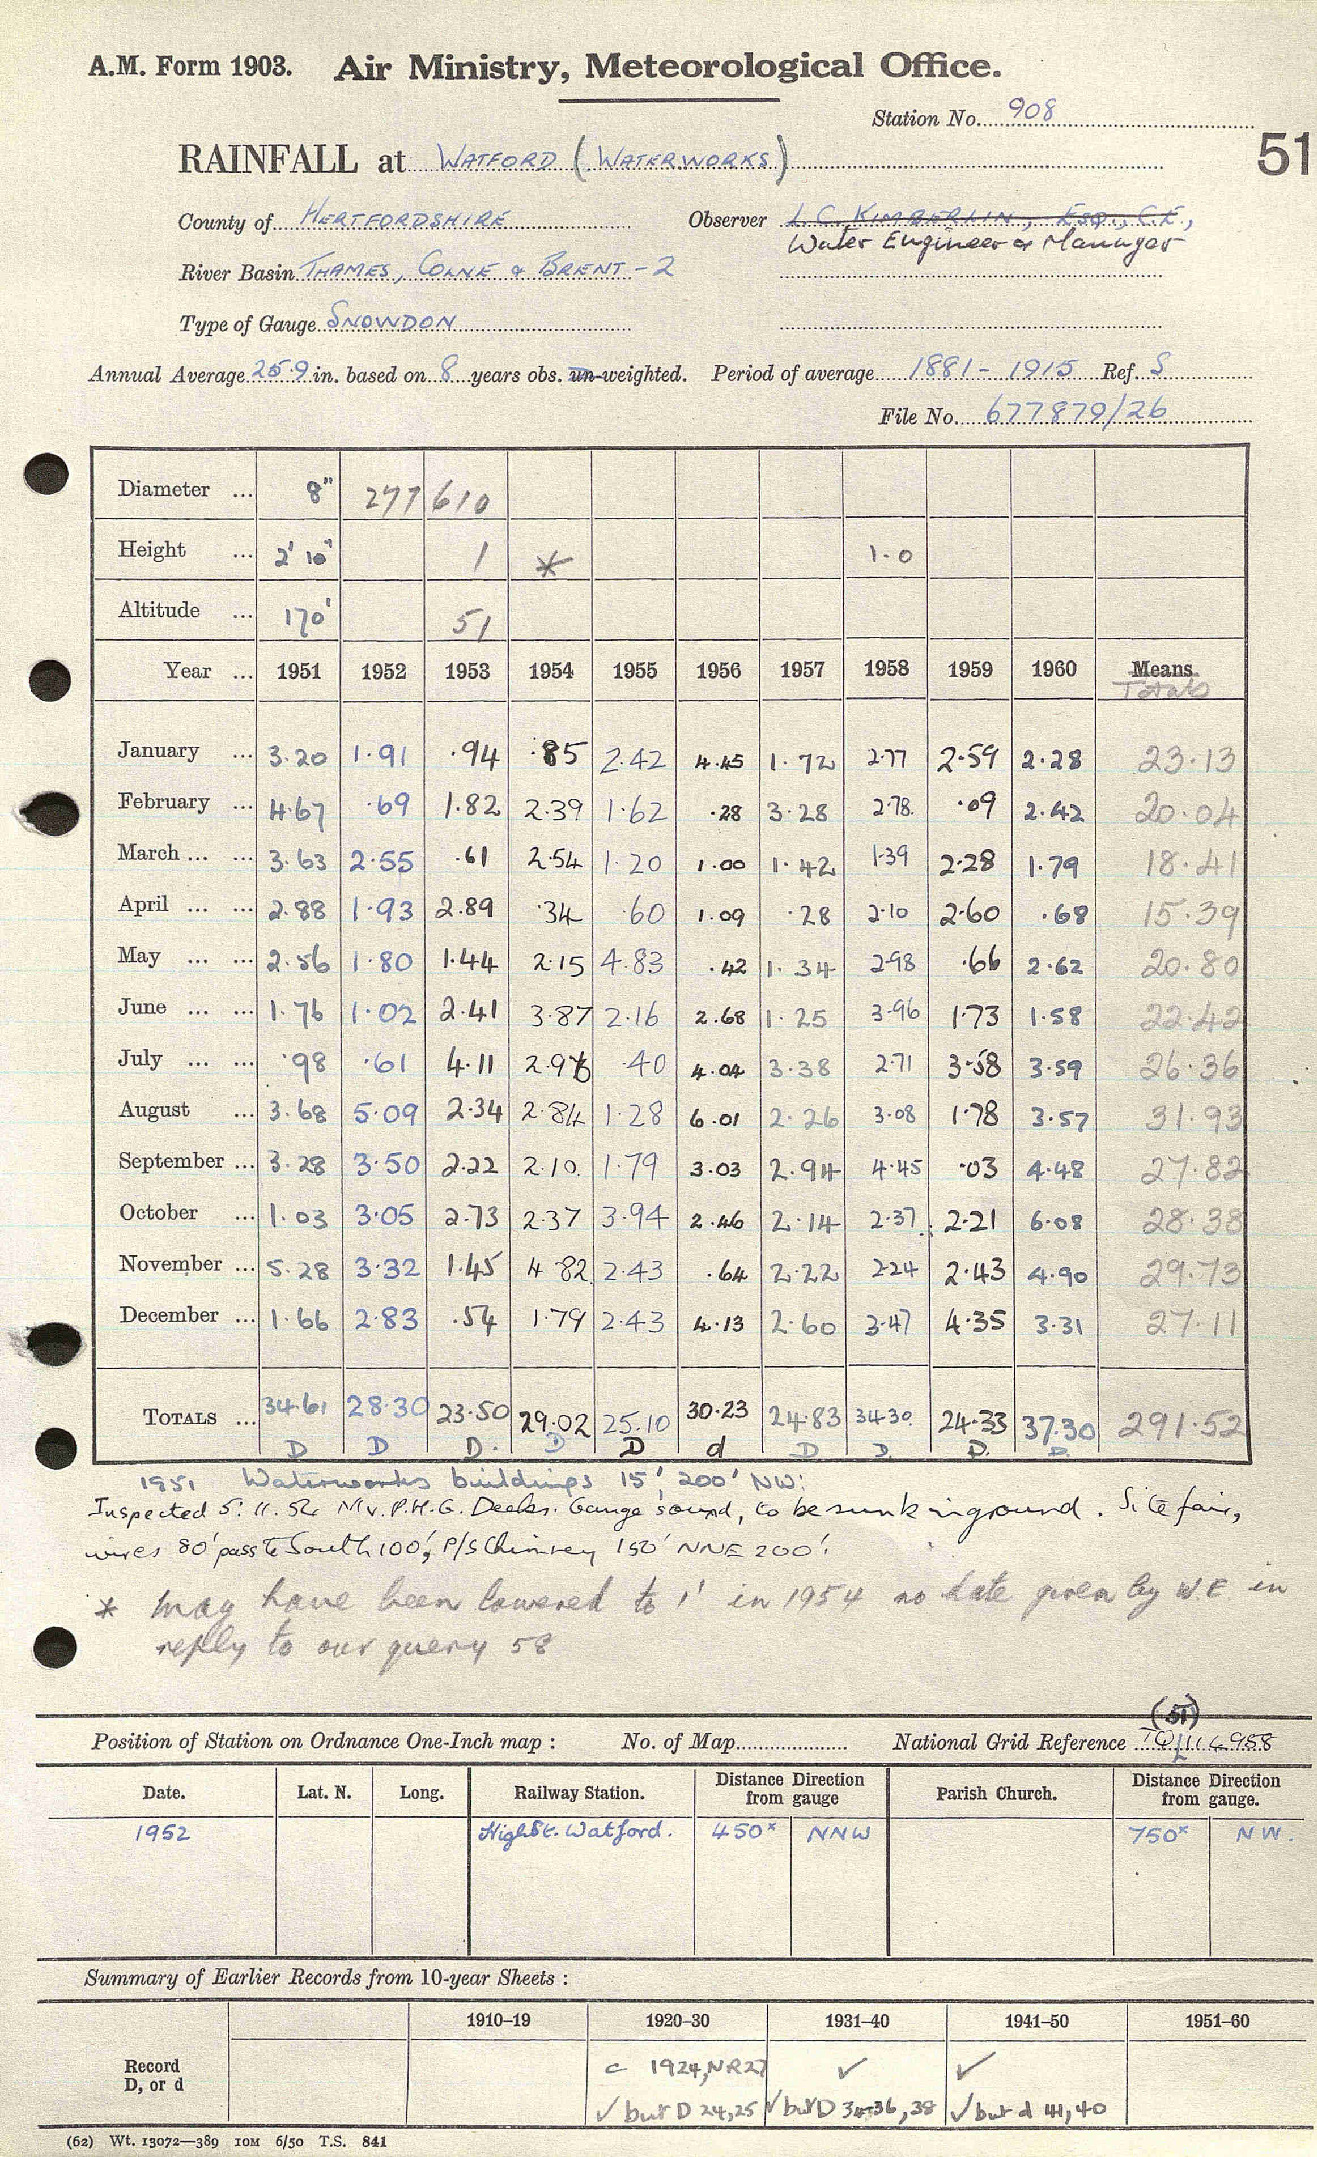 A.M. Form 1903. Air Ministry, Meteorological Office.
Station No. 908
51
RAINFALL at WATFORD (WATERWORKS)
County of HERTFORDSHIRE Observer L.C. KIMBERLIN, ESQ., C.E.,
Water Engineer & Manager
River Basin THAMES, COLNE & BRENT - 2
Type of Gauge SNOWDON
Annual Average 25.9 in. based on 8 years obs. un-weighted. Period of average 1881 - 1915 Ref. S
File No. 677879/26
Diameter ... 8" 277 610
Height ... 2' 10" 1 * 1.0
Altitude ... 170' 51
Year ... 1951 1952 1953 1954 1955 1956 1957 1958 1959 1960 Means
Totals
January ... 3.20 1.91 .94 .85 2.42 4.45 1.72 2.77 2.59 2.28 23.13
February ... 4.67 .69 1.82 2.39 1.62 .28 3.28 2.78 .09 2.42 20.04
March ... ... 3.63 2.55 .61 2.54 1.20 1.00 1.42 1.39 2.28 1.79 18.41
April ... ... 2.88 1.93 2.89 .34 .60 1.09 .28 2.10 2.60 .68 15.39
May ... ... 2.56 1.80 1.44 2.15 4.83 .42 1.34 2.98 .66 2.62 20.80
June ... ... 1.76 1.02 2.41 3.87 2.16 2.68 1.25 3.96 1.73 1.58 22.42
July ... ... .98 .61 4.11 2.96 .40 4.04 3.38 2.71 3.58 3.59 26.36
August ... 3.68 5.09 2.34 2.84 1.28 6.01 2.26 3.08 1.78 3.57 31.93
September ... 3.28 3.50 2.22 2.10 1.79 3.03 2.94 4.45 .03 4.48 27.82
October ... 1.03 3.05 2.73 2.37 3.94 2.46 2.14 2.37 2.21 6.08 28.38
November ... 5.28 3.32 1.45 4.82 2.43 .64 2.22 2.24 2.43 4.90 29.73
December ... 1.66 2.83 .54 1.79 2.43 4.13 2.60 3.47 4.35 3.31 27.11
TOTALS ... 34.61 28.30 23.50 29.02 25.10 30.23 24.83 34.30 24.33 37.30 291.52
D D D. D D d D D. D. D.
1951 Waterworks buildings 15', 200' NW.
Inspected 5.11.52 Mr. P.H.G. Deeks. Gauge sound, to be sunk in ground. Site fair,
wires 80' pass to South 100', P/S Chimney 150' NNE 200'.
* may have been lowered to 1' in 1954 no date given by W.E in
reply to our query 58
(51)
Position of Station on Ordnance One-Inch map : No. of Map National Grid Reference TQ
Date. Lat. N. Long. Railway Station. Distance Direction from gauge Parish Church. Distance Direction from gauge.
1952 High St. Watford. 450x NNW 750x NW.
Summary of Earlier Records from 10-year Sheets :
1910–19 1920–30 1931–40 1941–50 1951–60
Record c 1924, NR27 ✓ ✓
D, or d ✓ but D 24,25 ✓ but D 34-36, 38 ✓ but d 41, 40
(62) Wt. 13072—389 10M 6/50 T.S. 841